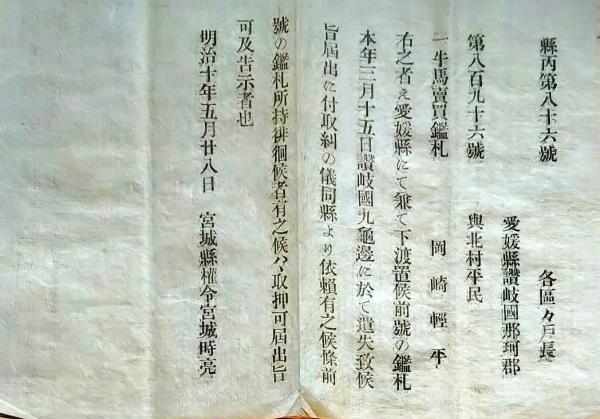 縣丙第八十六號
各區々戸長
愛媛縣讃岐國那珂郡
與北村平民
第八百九十六號
岡崎輕平
一牛馬賣買鑑札
右之者え愛媛縣にて兼て下渡置候前號の鑑札
本年三月十五日讃岐國丸龜邊に於て遺失致候
旨屆出に付取糾の儀同縣より依賴有之候條前
號の鑑札所持徘徊候者有之候ハヽ取押可屆出旨
可及告示者也
明治十年五月廿八日 宮城縣權令宮城時亮